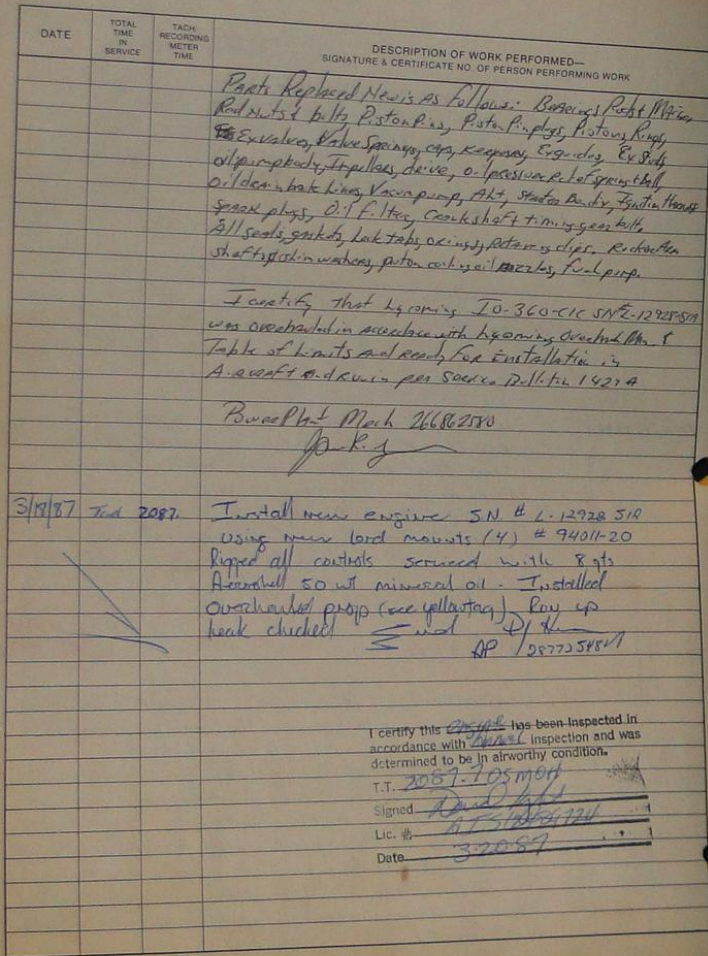 DATE
TOTAL TIME IN SERVICE
TACH. RECORDING METER TIME
DESCRIPTION OF WORK PERFORMED—
SIGNATURE & CERTIFICATE NO. OF PERSON PERFORMING WORK
Parts Replaced New is As follows: Bearings Rod & Main
Rod Nuts & bolts, Piston Pins, Piston Pin plugs, Pistons, Rings,
Ex valves, Valve Springs, caps, keepers, Ex guides, Ex
oil pump body, Impellers, drive, oil pressure Relief spring & ball,
oil drain back Lines, Vacuum pump, Ignition
spark plugs, Oil filter, Crankshaft timing gear bolt,
All seals, gaskets, Lock tabs, orings, Retaining clips. Rocker Arm
shafts washers, piston cooling oil nozzles, fuel pump.
I certify that Lycoming IO-360-C1C SN# L-12928-51A
was overhauled in accordance with Lycoming Overhaul Man. &
Table of Limits and Ready For Installation in
Aircraft and Run in per Service Bulletin 1427A
PowerPlant Mech 266862580
3/18/87 2087. Install new engine SN # L-12928 51A
using new lord mounts (4) # 94011-20
Rigged all controls serviced with 8 qts
Aeroshell 50 wt mineral oil - Installed
Overhauled prop (see yellow tag) Run up
leak checked End
AP
I certify this engine has been inspected in
accordance with Annual inspection and was
determined to be in airworthy condition.
T.T. 2087.7 0SMOH
Signed
Lic. #
Date 3-20-87